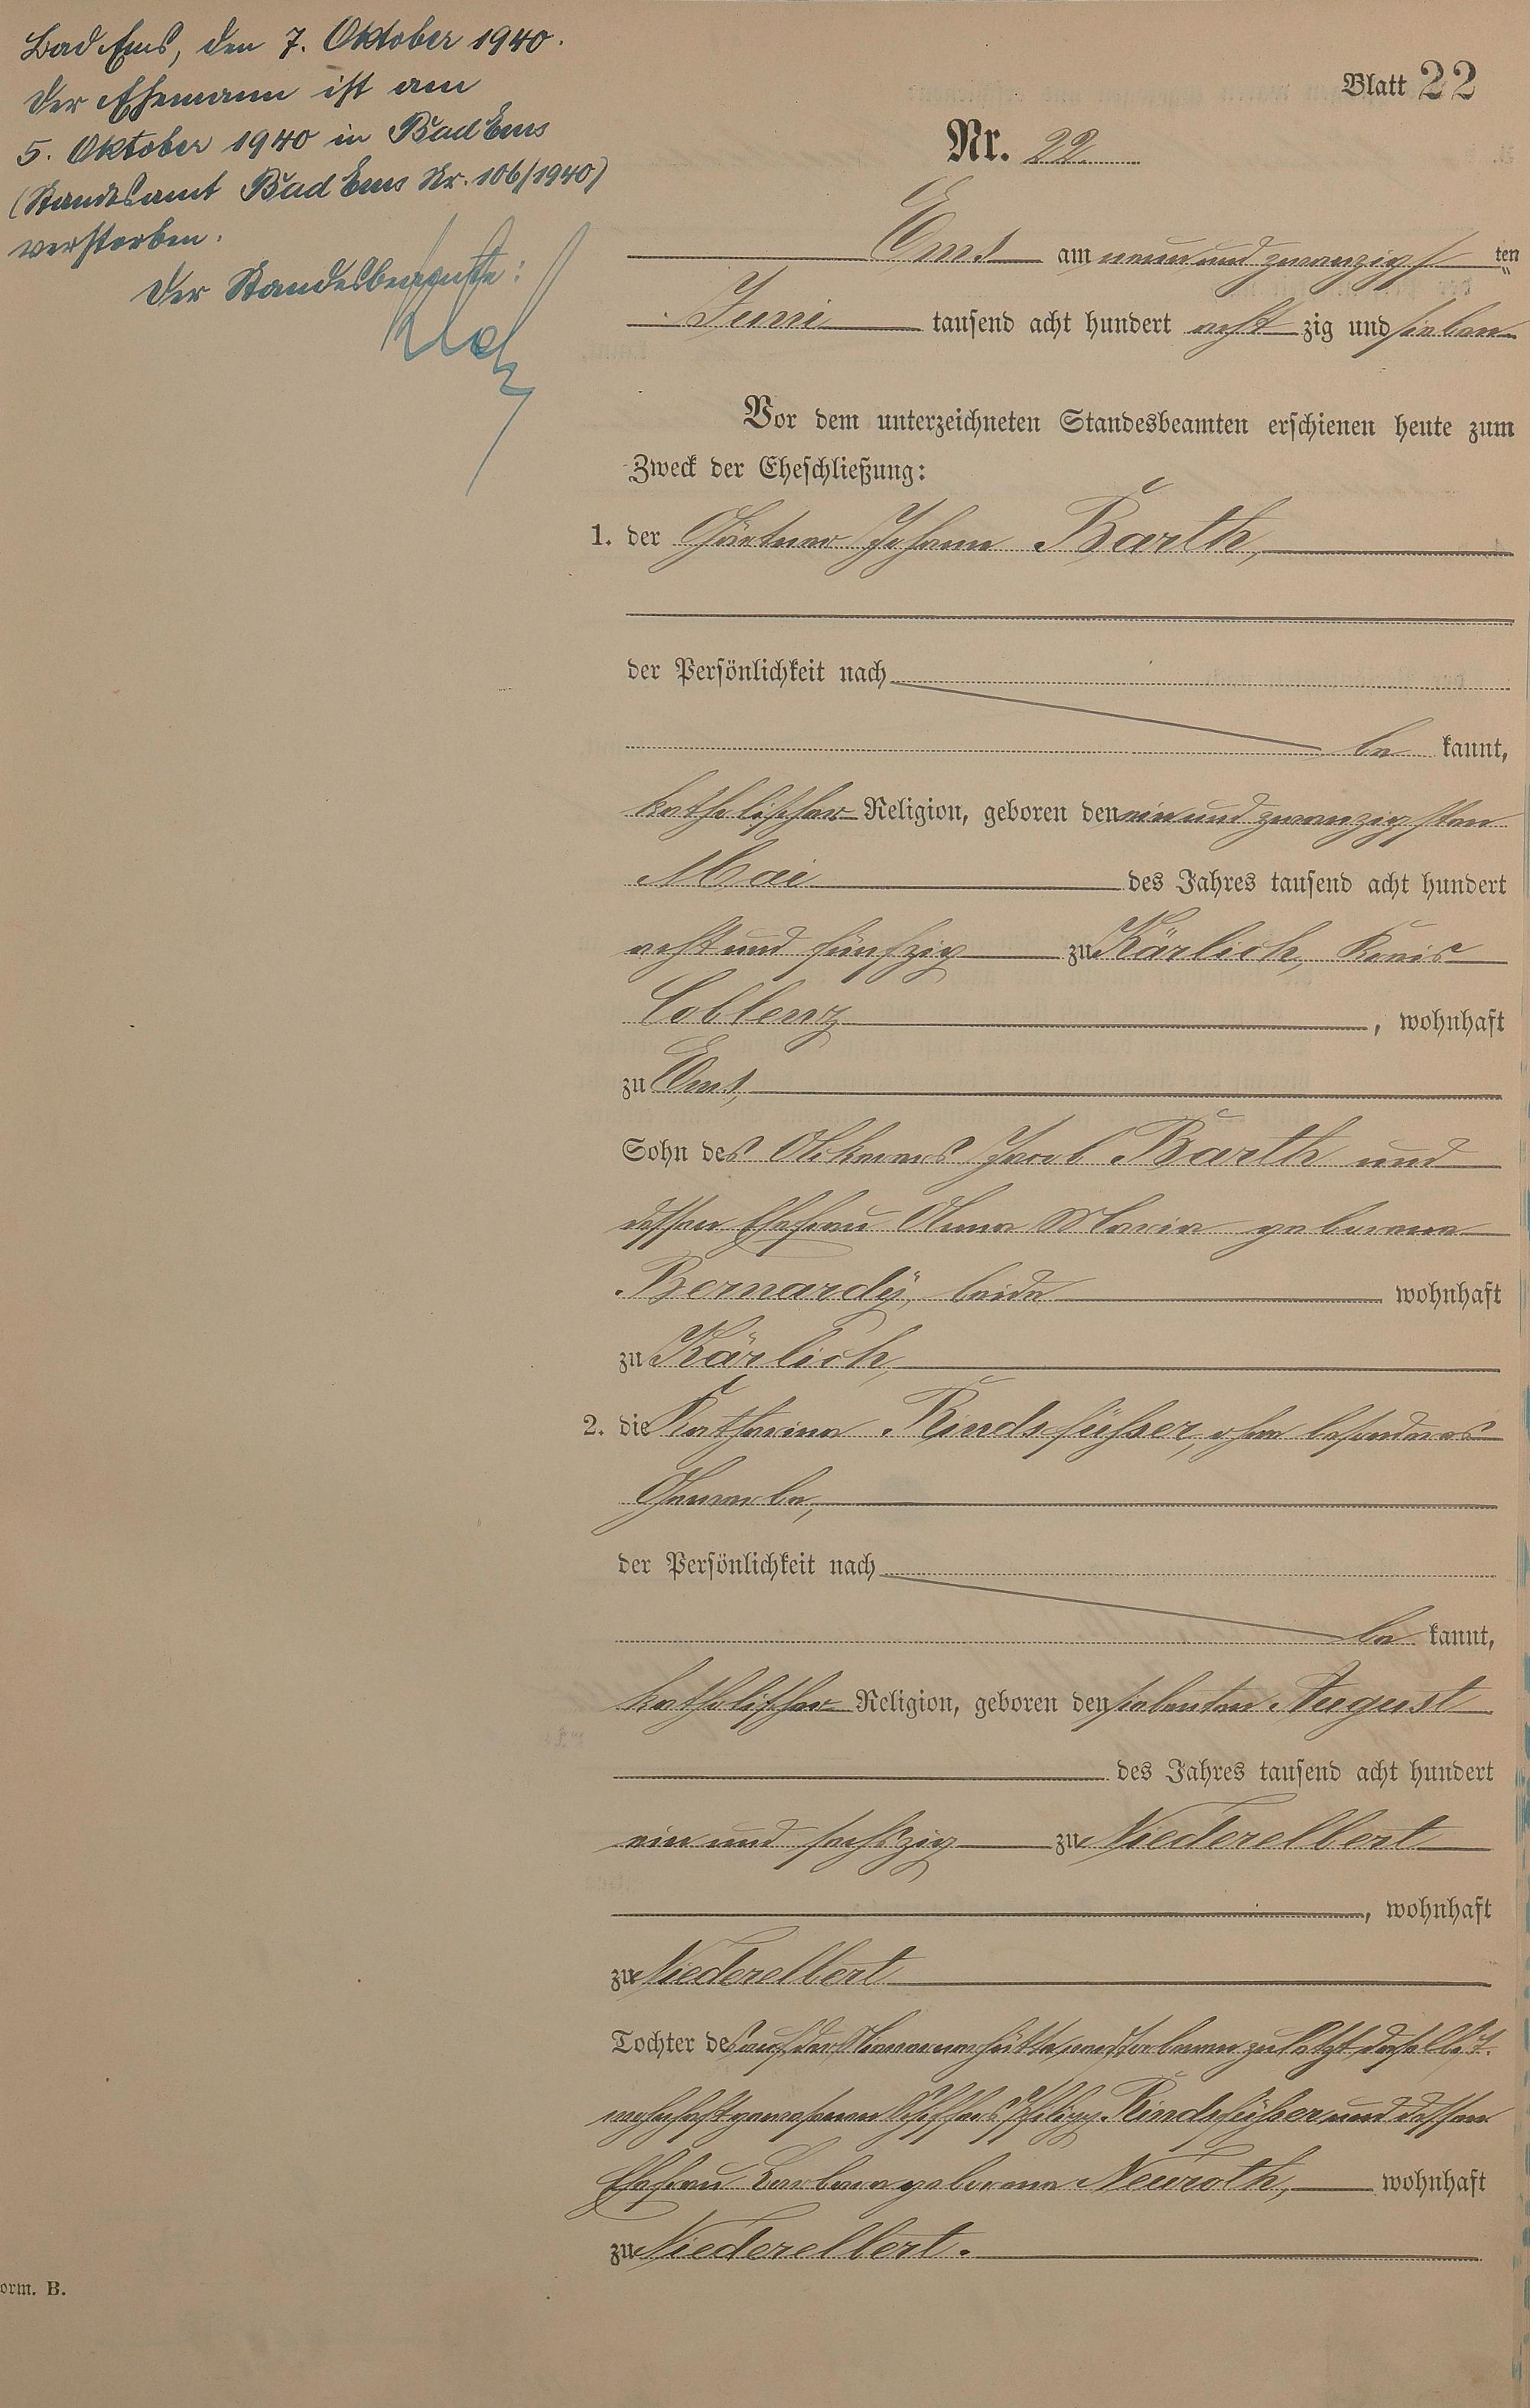 Bad Ems, den 7. Oktober 1940.
Der Ehemann ist am
5. Oktober 1940 in Bad Ems
(Standesamt Bad Ems Nr. 106/1940)
verstorben.
Der Standesbeamte:
Blatt 22
Nr. 22
Ems am neun und zwanzigs ten
Juni tausend acht hundert acht zig und sieben
Vor dem unterzeichneten Standesbeamten erschienen heute zum
Zweck der Eheschließung:
1. der Gärtner Johann Barth,
der Persönlichkeit nach
be kannt,
katholischer Religion, geboren den ein und zwanzigsten
Mai des Jahres tausend acht hundert
acht und fünfzig zu Kärlich, Kreis
Coblenz, wohnhaft
zu Ems,
Sohn des Ackerers Jacob Barth und
dessen Ehefrau Anna Maria geborene
Bernardÿ, beide wohnhaft
zu Kärlich,
2. die Katharina Rindsfüßer, ohne besonderes
Gewerbe,
der Persönlichkeit nach
be kannt,
katholischer Religion, geboren den siebenten August
des Jahres tausend acht hundert
ein und sechszig zu Niederelbert
, wohnhaft
zu Niederelbert
Tochter des auf der verstorbenen zuletzt daselbst
wohnhaft gewesenen Philipp Rindsfüßer und dessen
Ehefrau Barbara geborene Neuroth, wohnhaft
zu Niederelbert.
orm. B.